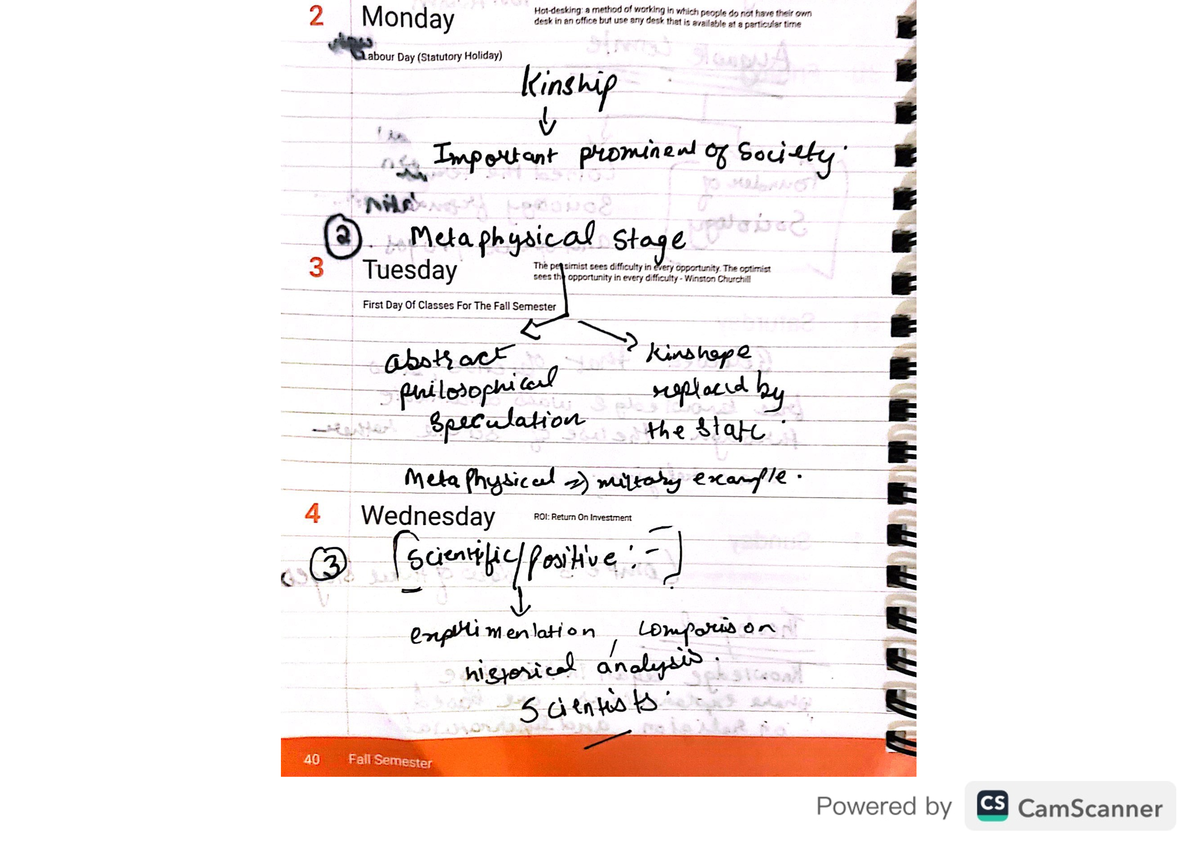 2 Monday
Hot-desking: a method of working in which people do not have their own
desk in an office but use any desk that is available at a particular time
Labour Day (Statutory Holiday)
Kinship
Important prominent of Society.
2. Metaphysical stage
3 Tuesday
The pessimist sees difficulty in every opportunity. The optimist
sees the opportunity in every difficulty - Winston Churchill
First Day Of Classes For The Fall Semester
abstract
philosophical
speculation
kinshepe
replaced by
the state.
Metaphysical => military example.
4 Wednesday
ROI: Return On Investment
3 [Scientific/Positive:-]
experimentation, comparison
historical analysis.
Scientists.
40 Fall Semester
Powered by CS CamScanner